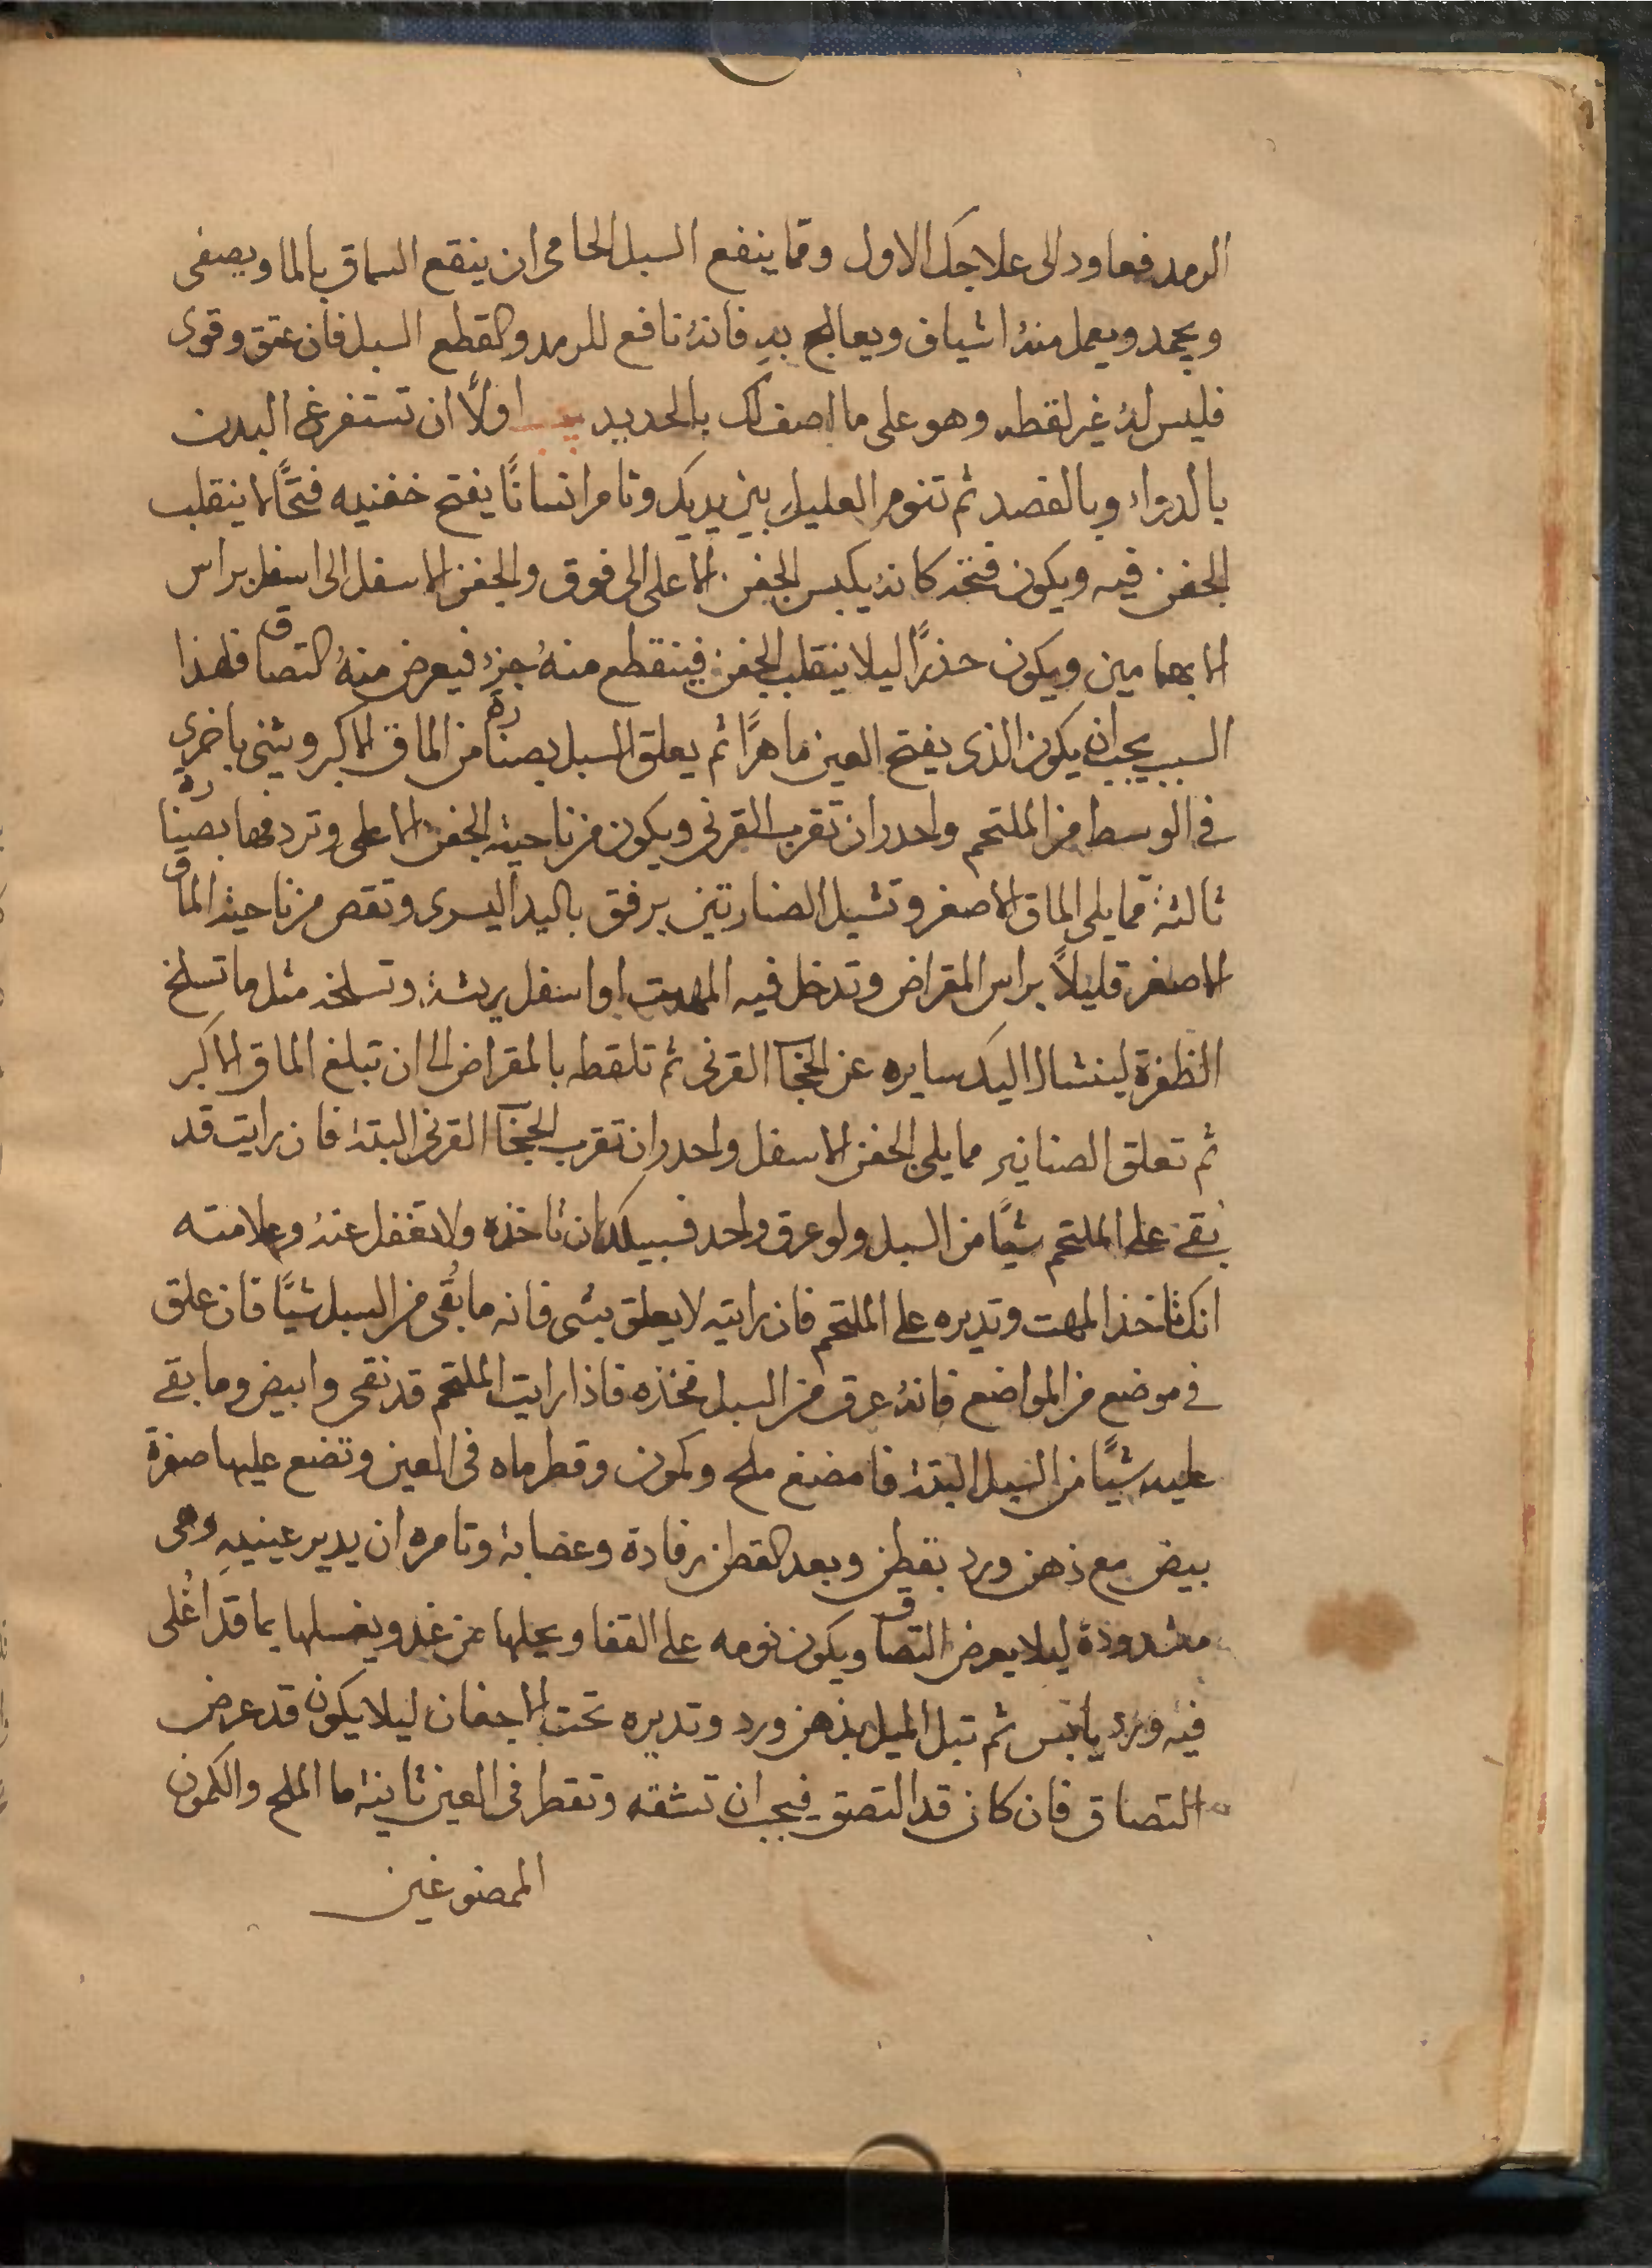 الرمد فعاود الى علاجك الاول ومما ينفع السبل الحامى ان ينقع السماق بالما ويصفى
ويجمد ويعمل منهُ اشياف ويعالج بهِ فانهُ نافع للرمد ولقطع السبل فان عتق وقوى
فليس لهُ غير لقطه وهو على ما اصف لك بالحديد يجب اولاً ان تستفرغ البدن
بالدواء وبالفصد ثم تنوم العليل بين يديك وتامر انسانًا يفتح خفنيه فتحًا لا ينقلب
الجفن فيه ويكون فتحه كانهُ يكبس الجفن الاعلى الى فوق والجفن الاسفل الى اسفل براس
الابهامين ويكون حذرًا ليلا ينقلب الجفن فينقطع منهُ جزءُ فيعرض منهُ التصاق فلهذا
السبب يجب ان يكون الذى يفتح العين ماهرًا ثم يعلق السبل بصنارة من الماق الاكبر ويثنى باخرى
فى الوسط من الملتحم واحدر ان تقرب القرنى ويكون من ناحية الجفن الاعلى وتردفها بصنارة
ثالثة مما يلى الماق الاصغر وتشيل الصنارتين برفق باليد اليسرى وتقص من ناحية الماق
الاصغر قليلاً براس المقراض وتدخل فيه المهت او اسفل ريشة وتسلخه مثل ما تسلخ
الظفرة لينشال اليك سايره عن الحجاب القرنى ثم تلقطه بالمقراض الى ان تبلغ الماق الاكبر
ثم تعلق الصنانير مما يلى الجفن الاسفل واحدر ان تقرب الحجاب القرنى البتة فان رايت قد
بقى على الملتحم شيًا من السبل ولو عرق واحد فسبيلك ان تاخذه ولا تغفل عنهُ وعلامته
انك تاخذ المهت وتديره على الملتحم فان رايته لا يعلق بشى فانه ما بقى من السبل شيًا فان علق
فى موضع من المواضع فانهُ عرق من السبل فخذه فاذا رايت الملتحم قد نقى وابيض وما بقى
عليه شيًا من السبل البتة فامضغ ملح وكمون وقطر ماه فى العين وتضع عليها صفرة
بيض مع ذهن ورد بقطن وبعد القطن رفادة وعضابة وتامره ان يدير عينيهِ وهى
مشدودة ليلا يعرض التصاق ويكون نومه على القفا ويحلها من غد ويغسلها بما قد اُغلى
فيه ورد يابس ثم تبل الميل بذهن ورد وتديره تحت الاجفان ليلا يكون قد عرض
التصاق فان كان قد التصق فيجب ان تشقه وتقطر فى العين ثانية ما الملح والكمون
الممضوغين